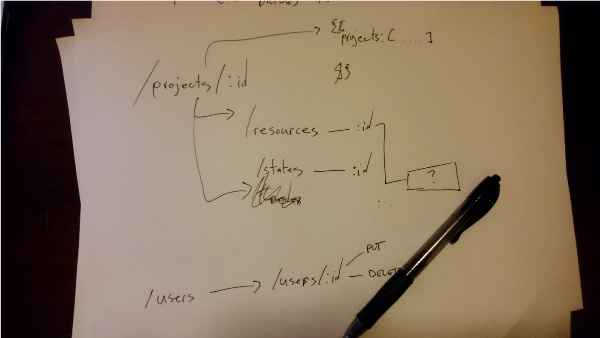 projects: [ .... ]
/projects/:id
/resources — :id
/states — :id
?
/users → /users/:id
PUT
DELET